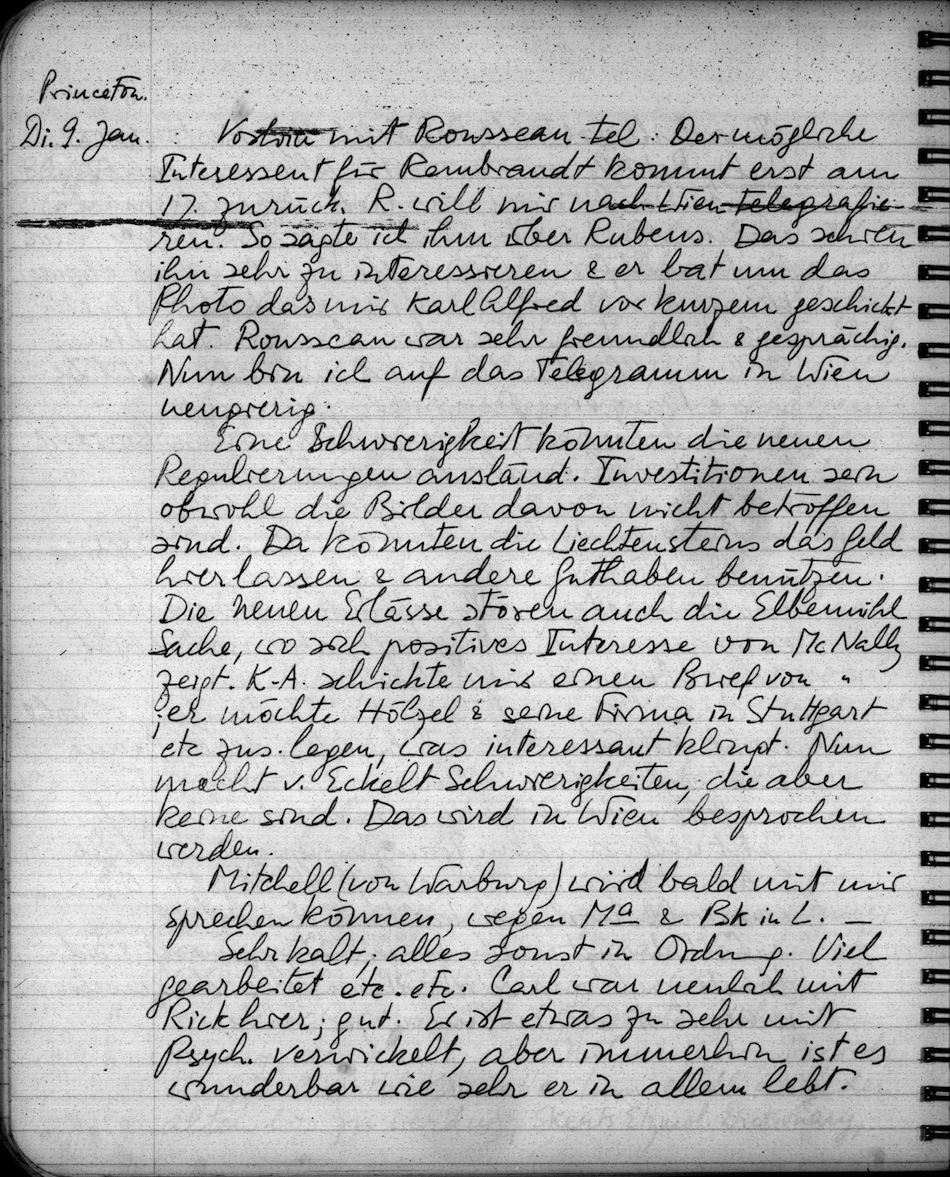 Princeton.
Di. 9. Jan. Vostri mit Rousseau tel. Der mögliche
Interessent für Rembrandt kommt erst am
17. zurück. R. will mir nach Wien telegrafie-
ren. So sagte ich ihm über Rubens. Das schien
ihn sehr zu interessieren & er bat um das
Photo das mir Karl Alfred vor kurzem geschickt
hat. Rousseau war sehr freundlich & gesprächig.
Nun bin ich auf das Telegramm in Wien
neugierig.
Eine Schwierigkeit könnten die neuen
Regulierungen ausländ. Investitionen sein
obwohl die Bilder davon nicht betroffen
sind. Da könnten die Liechtensteins das Geld
hier lassen & andere Guthaben benützen.
Die neuen Erlässe stören auch die Elbemühl
Sache, wo sich positives Interesse von McNally
zeigt. K-A. schickte mir einen Brief von "
; er möchte Hölzel & seine Firma in Stuttgart
etc zus. legen, was interessant klingt. Nun
macht v. Eckelt Schwierigkeiten, die aber
keine sind. Das wird in Wien besprochen
werden.
Mitchell (von Warburg) wird bald mit mir
sprechen können, wegen Ma & Bk in L. —
Sehr kalt; alles sonst in Ordng. Viel
gearbeitet etc. etc. Carl war neulich mit
Rick hier; gut. Er ist etwas zu sehr mit
Psych. verwickelt, aber immerhin ist es
wunderbar wie sehr er in allem lebt.